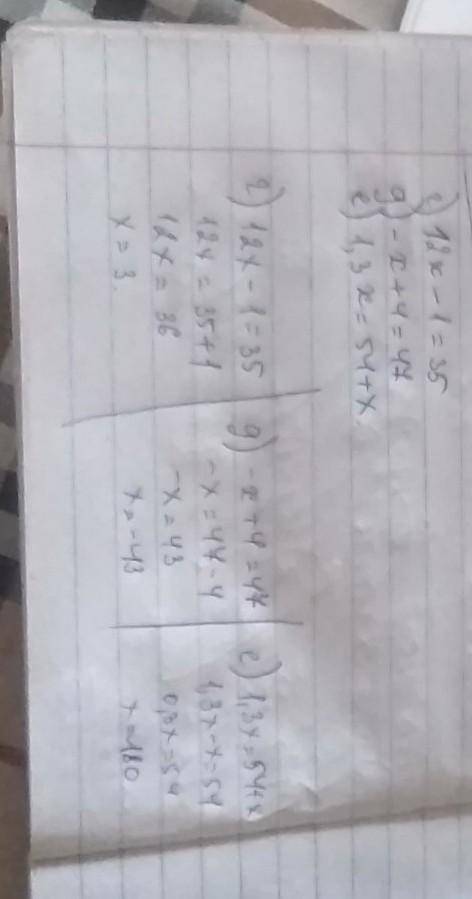 г) 12x - 1 = 35
g) - x + 4 = 47
e) 1,3x = 54 + x
г) 12x - 1 = 35
12x = 35 + 1
12x = 36
x = 3.
g) - x + 4 = 47
- x = 47 - 4
- x = 43
x = - 43
e) 1,3x = 54 + x
1,3x - x = 54
0,3x = 54
x = 180